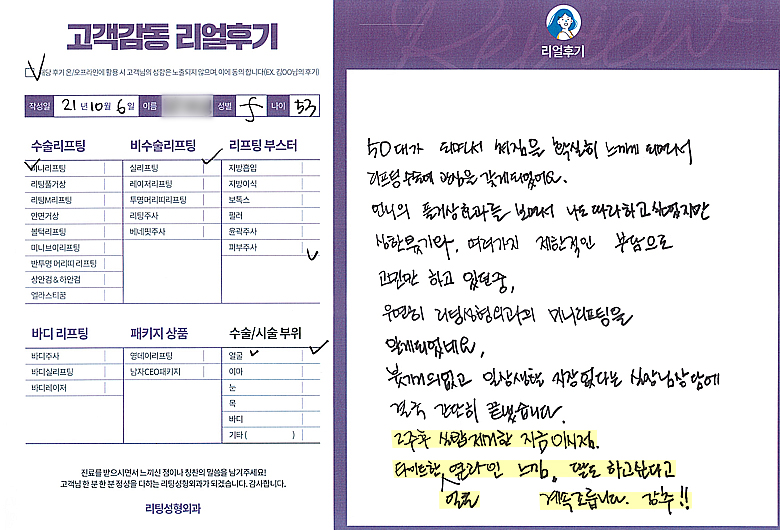 고객감동 리얼후기
해당 후기 온/오프라인에 활용 시 고객님의 성함은 노출되지 않으며, 이에 동의 합니다(EX. 김OO님의 후기)
작성일 21년 10월 6일 이름 성별 f 나이 53
수술리프팅
미니리프팅
리팅풀거상
리팅M리프팅
안면거상
볼턱리프팅
미니브이리프팅
반투명 머리띠 리프팅
상안검 & 하안검
엘라스티꿈
비수술리프팅
실리프팅
레이저리프팅
투명머리띠리프팅
리팅주사
베네핏주사
리프팅 부스터
지방흡입
지방이식
보톡스
필러
윤곽주사
피부주사
바디 리프팅
바디주사
바디실리프팅
바디레이저
패키지 상품
영데이리프팅
남자CEO패키지
수술/시술 부위
얼굴
이마
눈
목
바디
기타 ( )
진료를 받으시면서 느끼신 점이나 칭찬의 말씀을 남겨주세요!
고객님 한 분 한 분 정성을 다하는 리팅성형외과가 되겠습니다. 감사합니다.
리팅성형외과
Review
리얼후기
50대가 되면서 처짐을 확실히 느끼게 되면서
리프팅수술에 관심을 갖게되었어요.
언니의 풀거상효과를 보면서 나도 따라하고 싶었지만
심한붓기와, 여러가지 제한적인 부담으로
고민만 하고 있던중,
우연히 리팅성형외과의 미니리프팅을
알게되었네요,
붓기거의없고 일상생활 지장없다는 실장님상담에
결국 간단히 끝냈습니다.
2주후 실밥제거한 지금 이시점.
타이트한 옆라인 느낌, 딸도 하고싶다고
얼굴 계속조릅니다. 강추!!